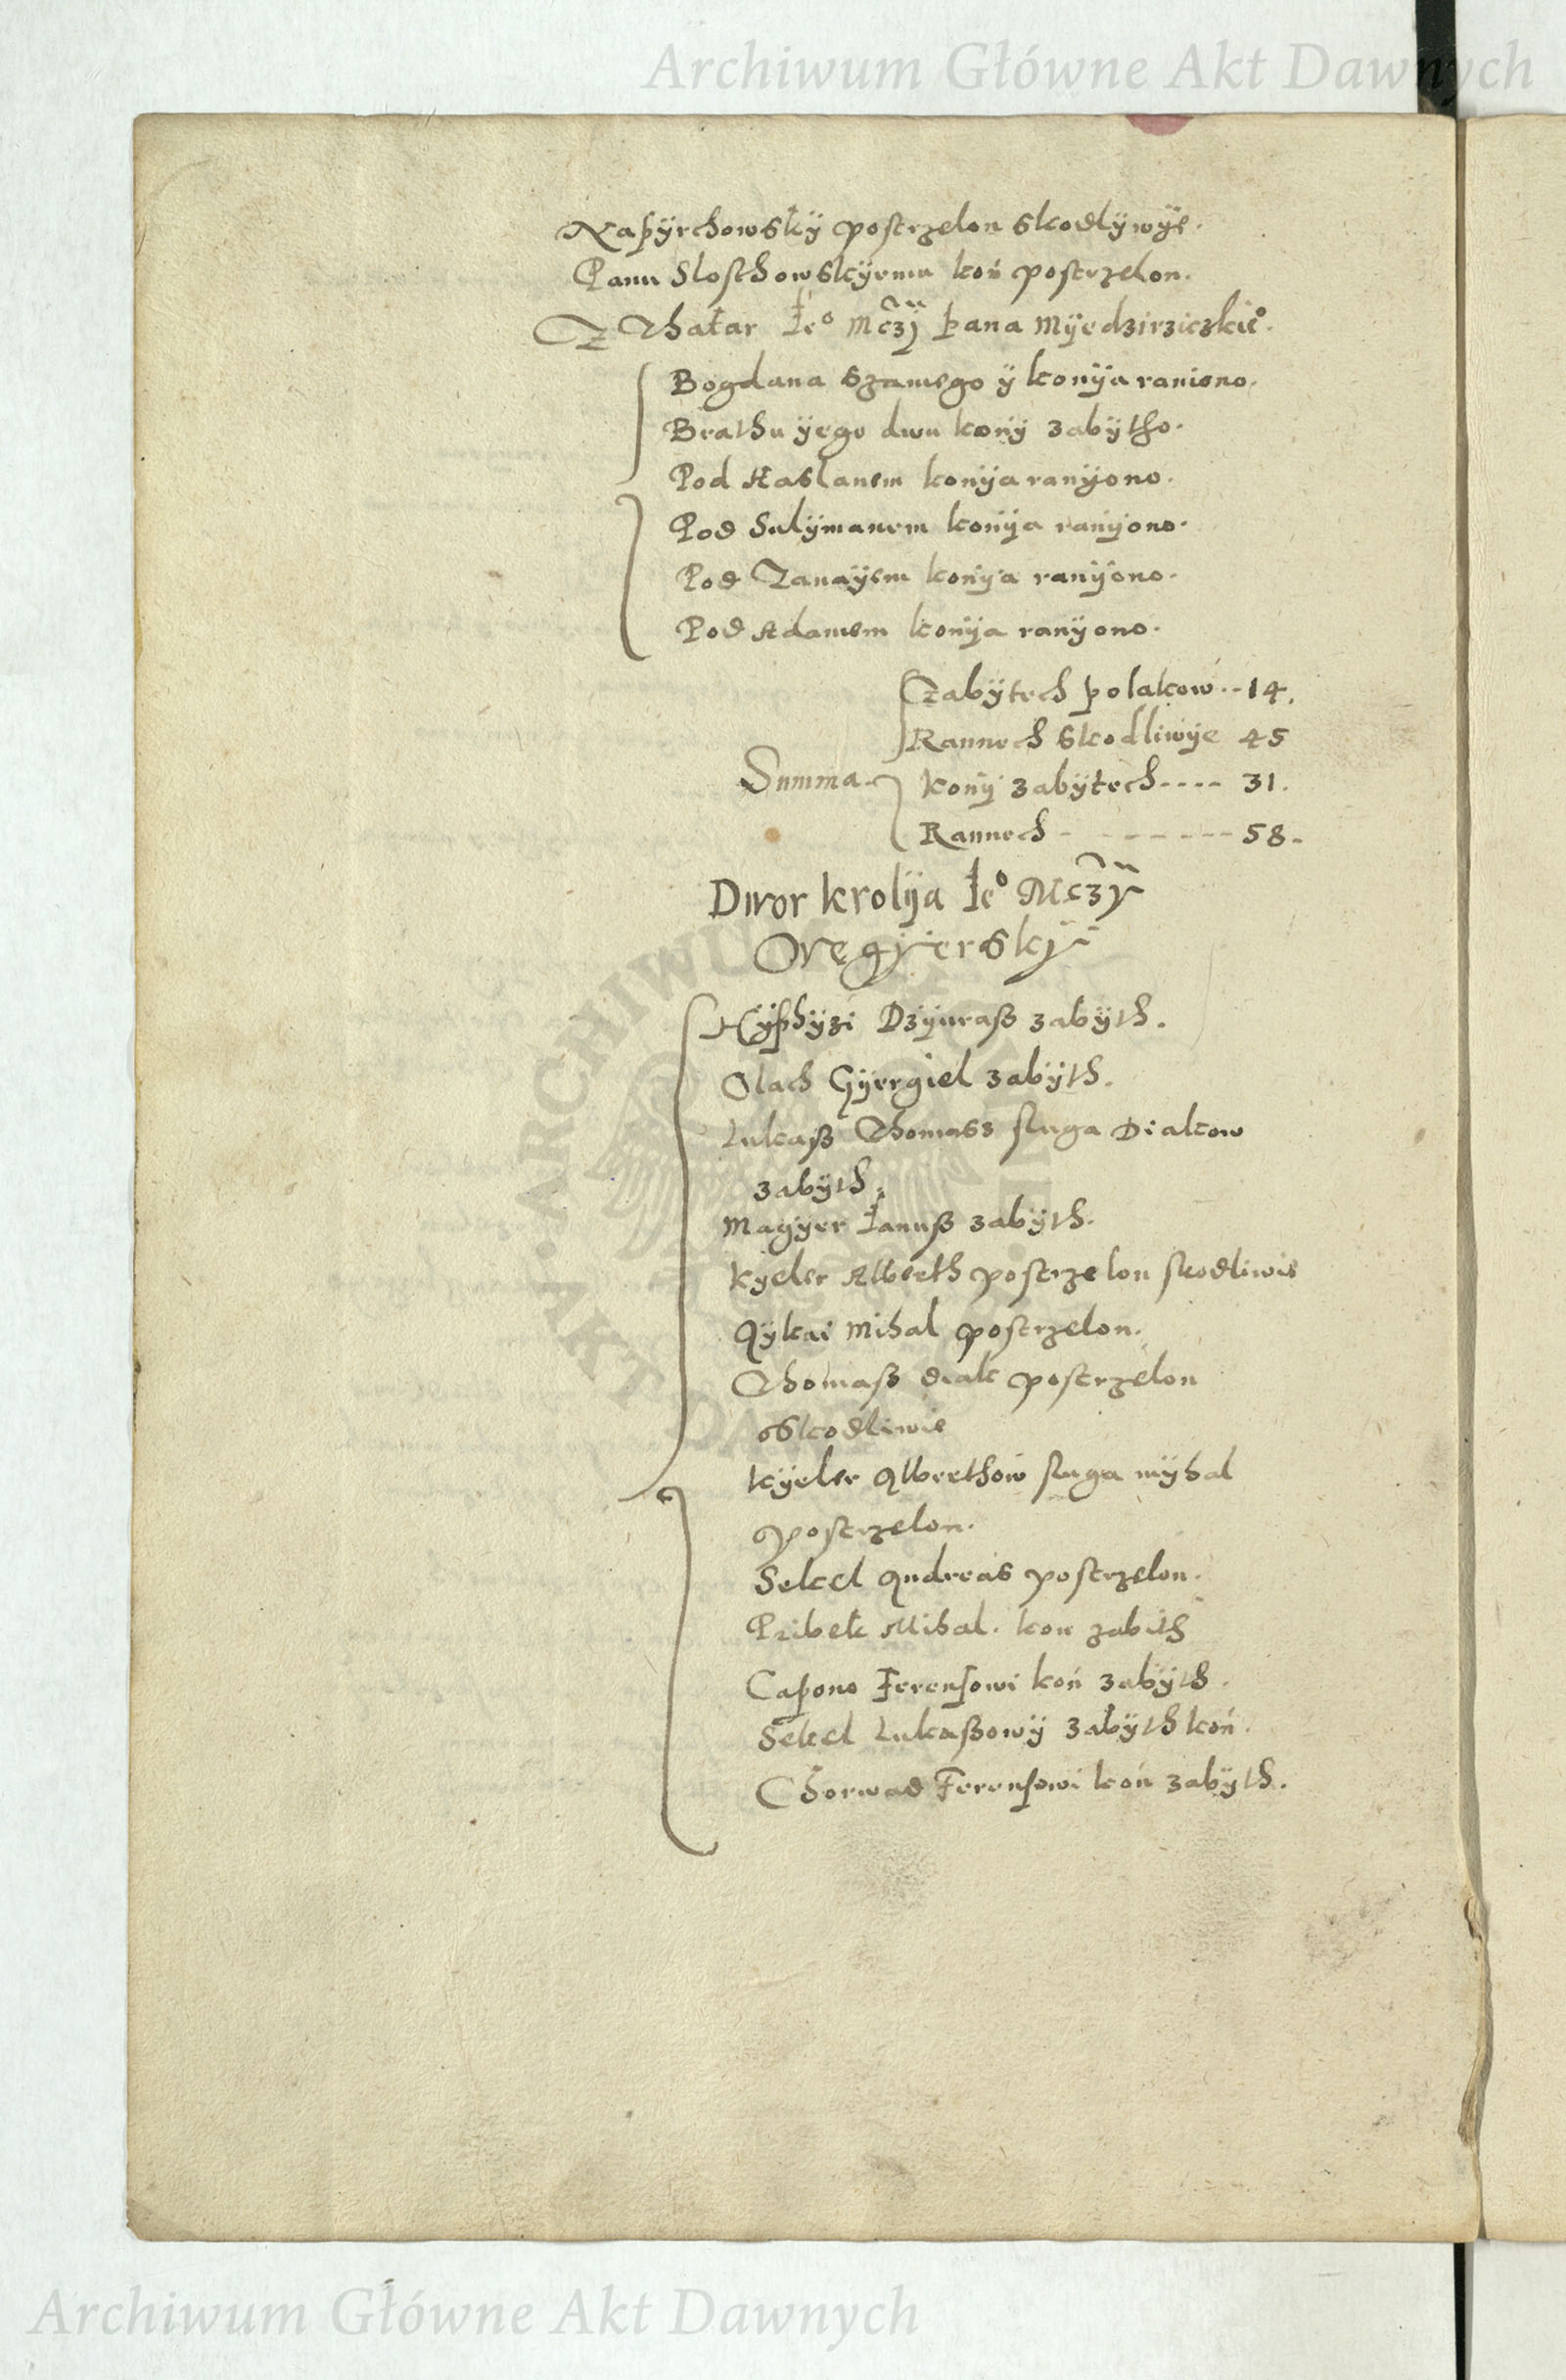 Archiwum Główne Akt Dawnych
Napÿrchowskÿ postrzelon skodlÿwÿe.
Panu Slosthowskÿemu koń postrzelon.
Z Thatar Ie° Mczÿ pana Mÿedzirziczkie°.
Bogdana szamego ÿ konÿa raniono.
Brathu ÿego dwu konÿ zabÿtho.
Pod Aaslanem konÿa ranÿono.
Pod Sulÿmanem konÿa ranÿono.
Pod Zanaÿem konÿa ranÿono.
Pod Adamem konÿa ranÿono.
Zabÿtech polakow 14.
Rannech skodliwÿe 45
Summa. konÿ zabÿtech 31.
Rannech 58.
Dwor krolÿa Ie° Mczÿ
Węgÿerskÿ
Dzÿuraß zabÿth.
Olach Gÿergiel zabÿth.
Lukaß Thomass sluga Diakow
zabÿth.
Magÿer Ianuß zabÿth.
Kÿeler Albreth postrzelon skodliwie
Mihal postrzelon.
Thomaß diak postrzelon
skodliwie
Kÿeler Albrethow sluga mÿhal
postrzelon.
Sekel Andreas postrzelon.
Pribek Mihal. kon zabith
Capono Ferensowi koń zabÿth.
Sekel Lukaßowÿ zabÿth koń.
Chorwad Ferensowi koń zabÿth.
ARCHIWUM
AKT DAWNYCH
Archiwum Główne Akt Dawnych